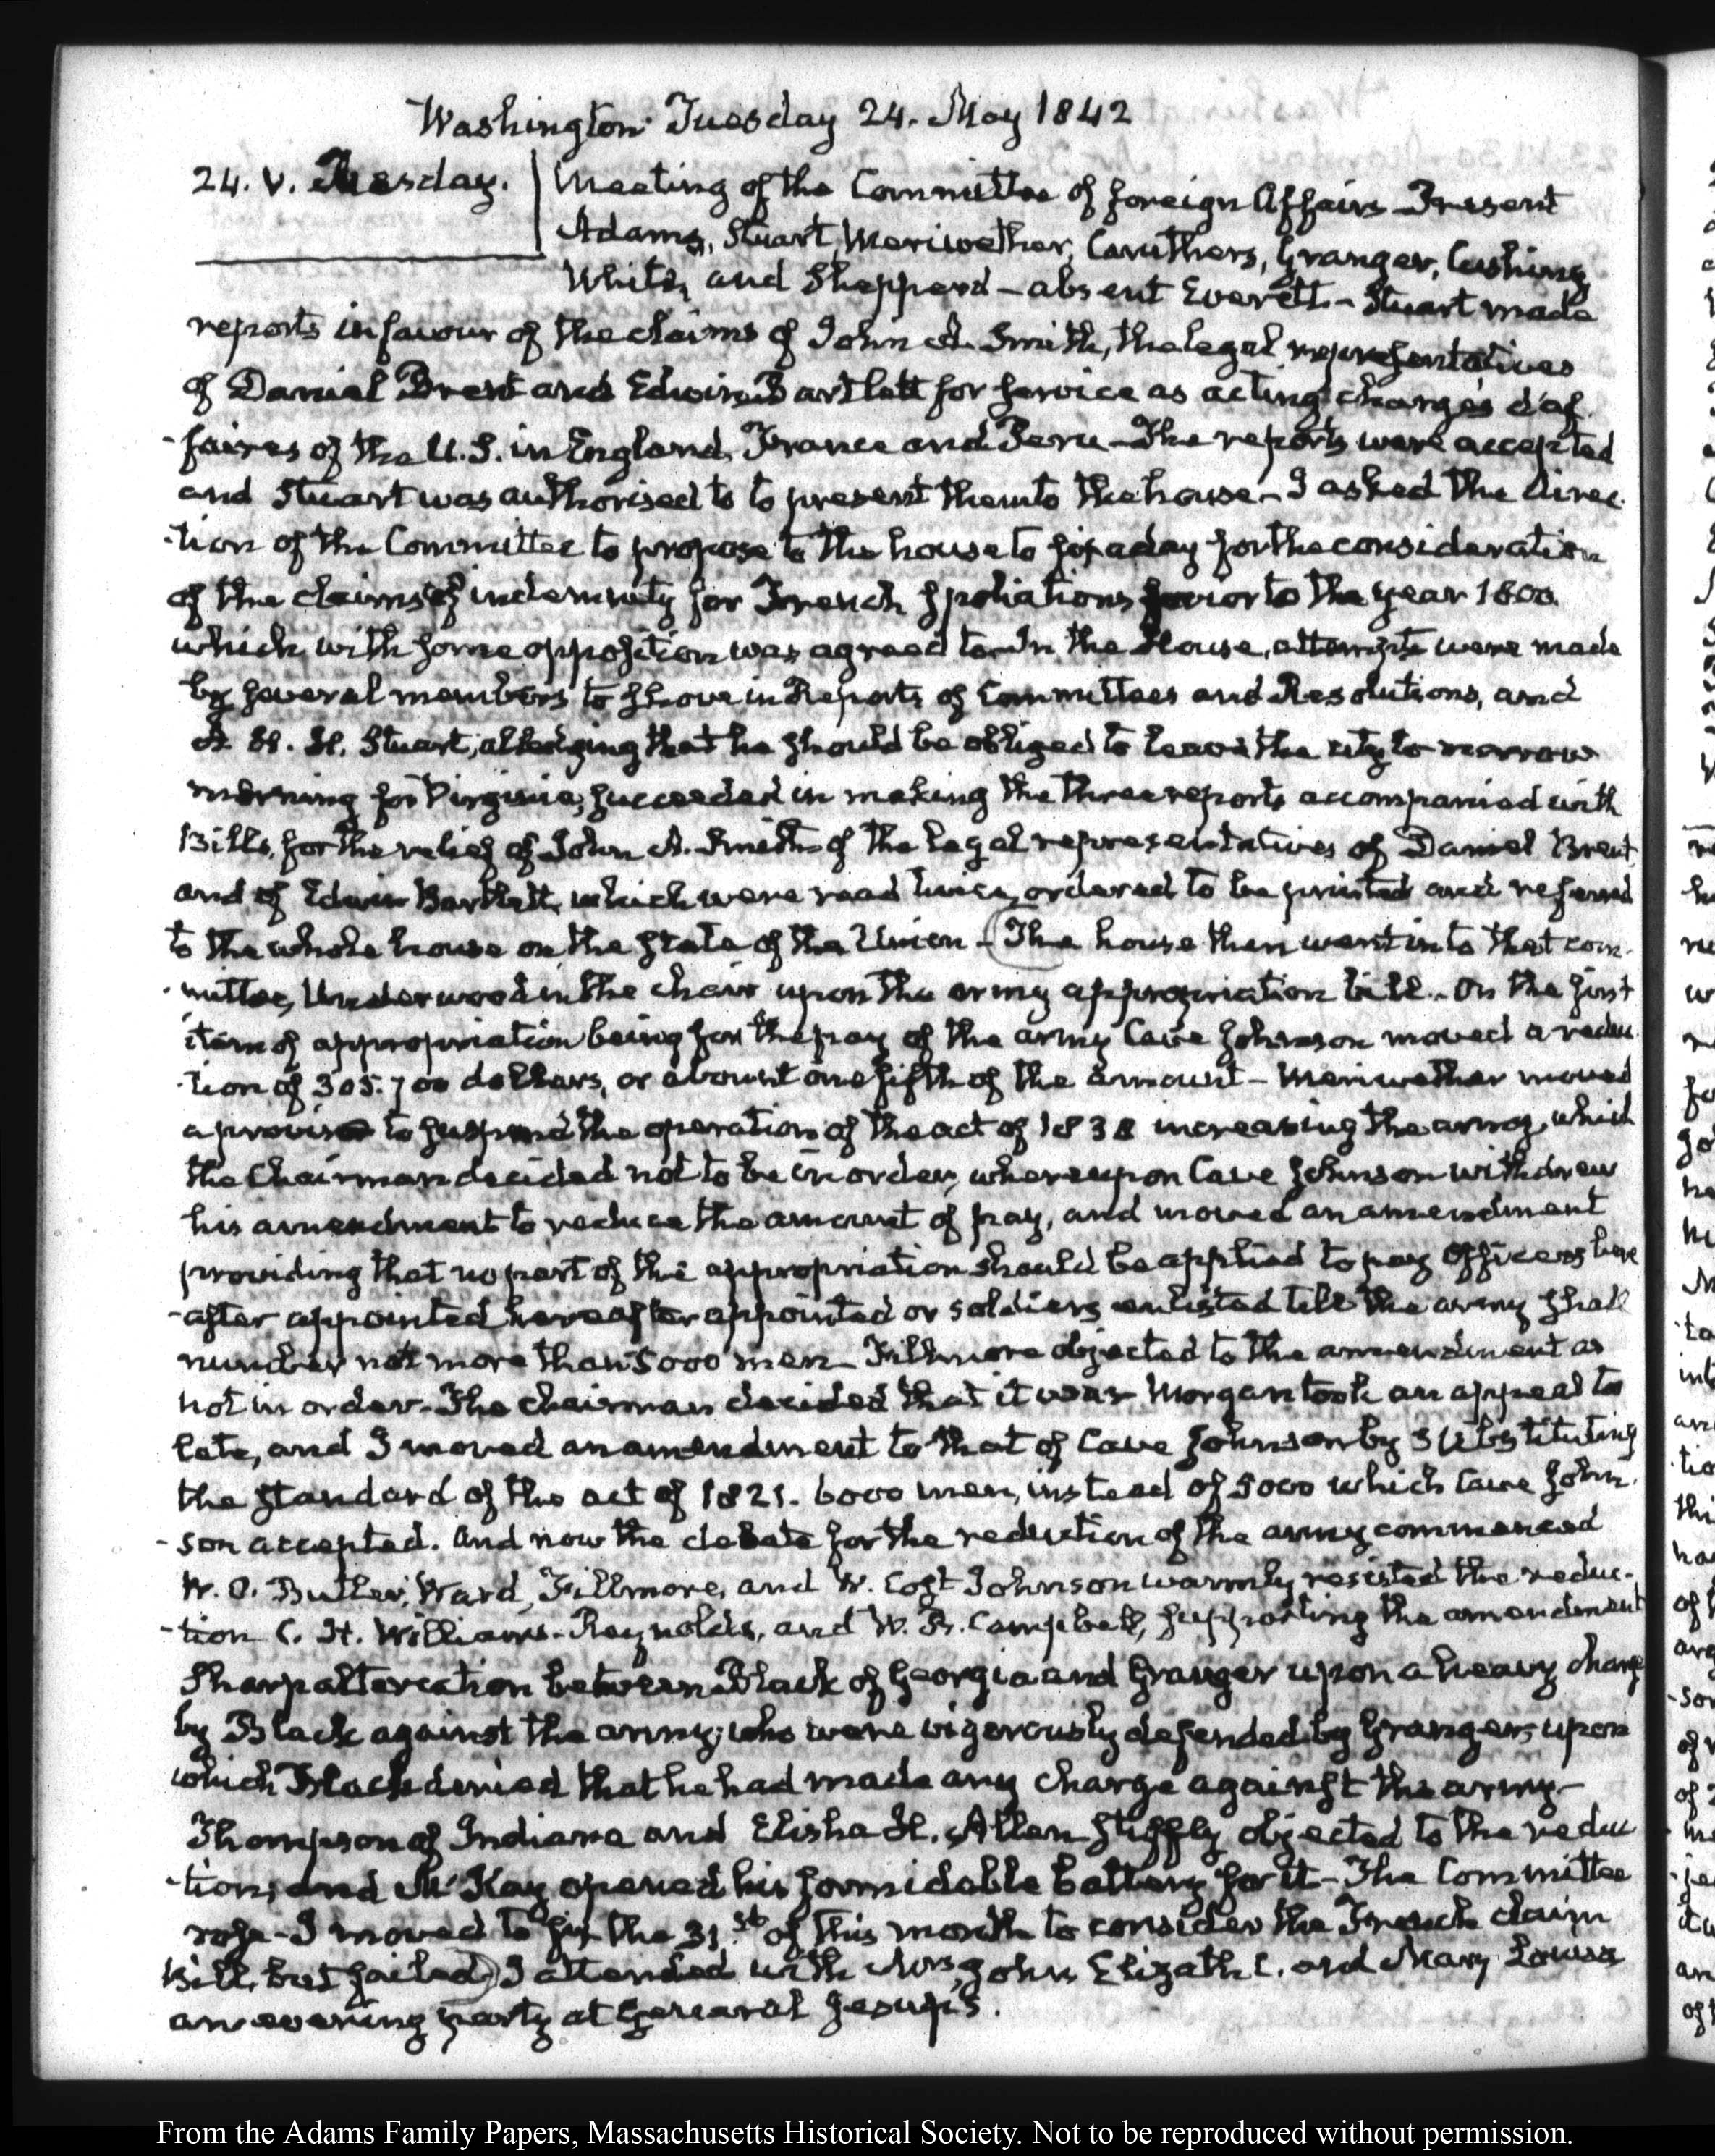 Washington Tuesday 24. May 1842
24. V. Tuesday. Meeting of the Committee of foreign Affairs Present
Adams, Stuart, Meriwether, Caruthers, Granger, Cushing
White, and Shepperd - absent Everett. - Stuart made
reports in favour of the claims of John A. Smith, the legal representatives
of Daniel Brent and Edwin Bartlett for service as acting chargés d'af
-faires of the U.S. in England, France and Peru - The reports were accepted
and Stuart was authorised to to present them to the house - I asked the direc
-tion of the Committee to propose to the house to fix a day for the consideration
of the claims of indemnity for French spoliations prior to the year 1800
which with some opposition was agreed to - In the House, attempts were made
by several members to shove in Reports of Committees and Resolutions, and
A. H. H. Stuart, alledging that he should be obliged to leave the city to morrow
morning for Virginia, succeeded in making the three reports accompanied with
Bills, for the relief of John A. Smith of the legal representatives of Daniel Brent
and of Edwin Bartlett, which were read twice, ordered to be printed and referred
to the whole house on the state of the Union - (The house then went into that com-
-mittee, Underwood in the chair upon the army appropriation bill. On the first
item of appropriation being for the pay of the army Cave Johnson moved a reduc
-tion of 305.700 dollars, or about one fifth of the amount - Meriwether moved
a proviso to suspend the operation of the act of 1838 increasing the army, which
the Chairman decided not to be in order, whereupon Cave Johnson withdrew
his amendment to reduce the amount of pay, and moved an amendment
providing that no part of the appropriation should be applied to pay Officers here
-after appointed hereafter appointed or soldiers enlisted till the army shall
number not more than 5000 men - Fillmore objected to the amendment as
not in order - The chairman decided that it was - Morgan took an appeal too
late, and I moved an amendment to that of Cave Johnson by substituting
the standard of the act of 1821. 6000 men, instead of 5000 which Cave John
-son accepted. And now the debate for the reduction of the army commenced
W. O. Butler, Ward, Fillmore, and W. Cost Johnson warmly resisted the reduc-
-tion C. H. Williams - Reynolds, and W. B. Campbell, supporting the amendment
Sharp altercation between Black of Georgia and Granger upon a heavy charge
by Black against the army; who were vigorously defended by Granger; upon
which Black denied that he had made any charge against the army -
Thompson of Indiana and Elisha H. Allen stiffly objected to the reduc
-tion; and McKay opened his formidable battery for it - The Committee
rose - I moved to fix the 31.st of this month to consider the French claim
Bill, but failed) I attended with Mrs John, Elizabth C. and Mary Louisa
an evening party at General Jesup's.
From the Adams Family Papers, Massachusetts Historical Society. Not to be reproduced without permission.